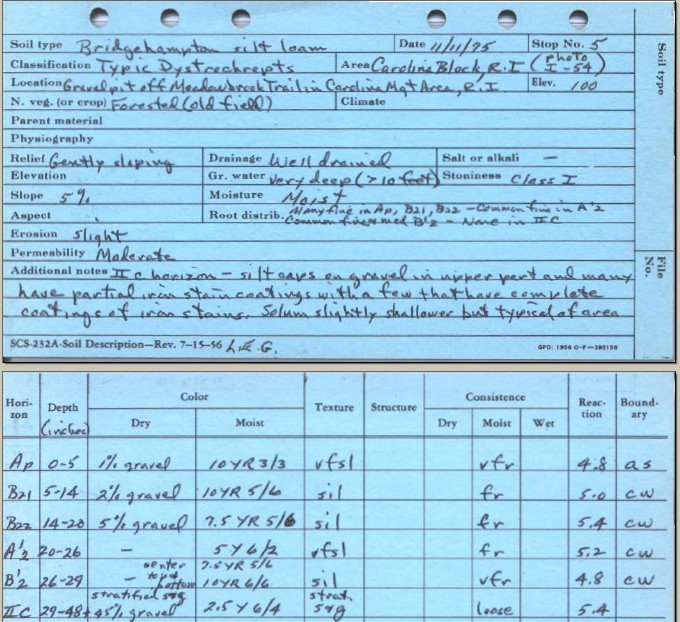 Soil type Bridgehampton silt loam Date 11/11/75 Stop No. 5
Classification Typic Dystrochrepts Area Carolina Block, R.I (photo I-54)
Location Gravel pit off Meadowbrook Trail in Carolina Mgt Area, R.I. Elev. 100
N. veg. (or crop) Forested (old field) Climate
Parent material
Physiography
Relief Gently sloping Drainage Well drained Salt or alkali —
Elevation Gr. water very deep (>10 feet) Stoniness Class I
Slope 5% Moisture Moist
Aspect Root distrib. Many fine in Ap, B21, B22 – Common fine in A'2
Common fine & med B'2 – None in IIC
Erosion slight
Permeability Moderate
Additional notes IIC horizon – silt caps on gravel in upper part and many
have partial iron stain coatings with a few that have complete
coatings of iron stains. Solum slightly shallower but typical of area
SCS-232A-Soil Description—Rev. 7-15-56 L.E.G. GPO: 1956 O-F—395158
Soil type
File No.
Hori-zon Depth (inches) Color Texture Structure Consistence Reac-tion Bound-ary
Dry Moist Dry Moist Wet
Ap 0-5 1% gravel 10YR 3/3 vfsl vfr 4.8 as
B21 5-14 2% gravel 10YR 5/6 sil fr 5.0 cw
B22 14-20 5% gravel 7.5 YR 5/6 sil fr 5.4 cw
A'2 20-26 — 5Y 6/2 vfsl fr 5.2 cw
center 7.5YR 5/6
B'2 26-29 — top & bottom 10YR 6/6 sil vfr 4.8 cw
stratified s&g strat
IIC 29-48+ 45% gravel 2.5Y 6/4 s&g loose 5.4